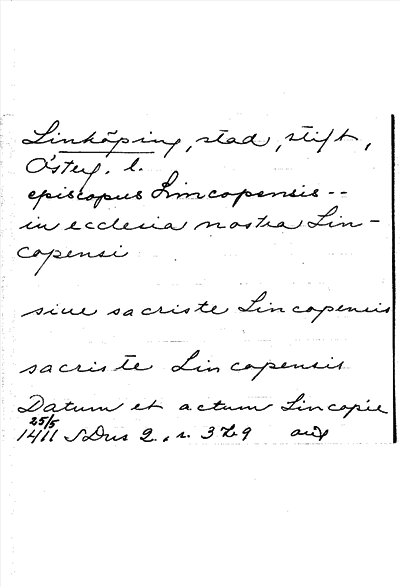 Linköping, stad, stift,
Östeg. l.
episcopus Lincopensis --
in ecclesia nostra Lin-
copensi
siue sacriste Lincopensis
sacriste Lincopensis
Datum et actum Lincopie
25/5
1411 SDns 2, s. 379 avs